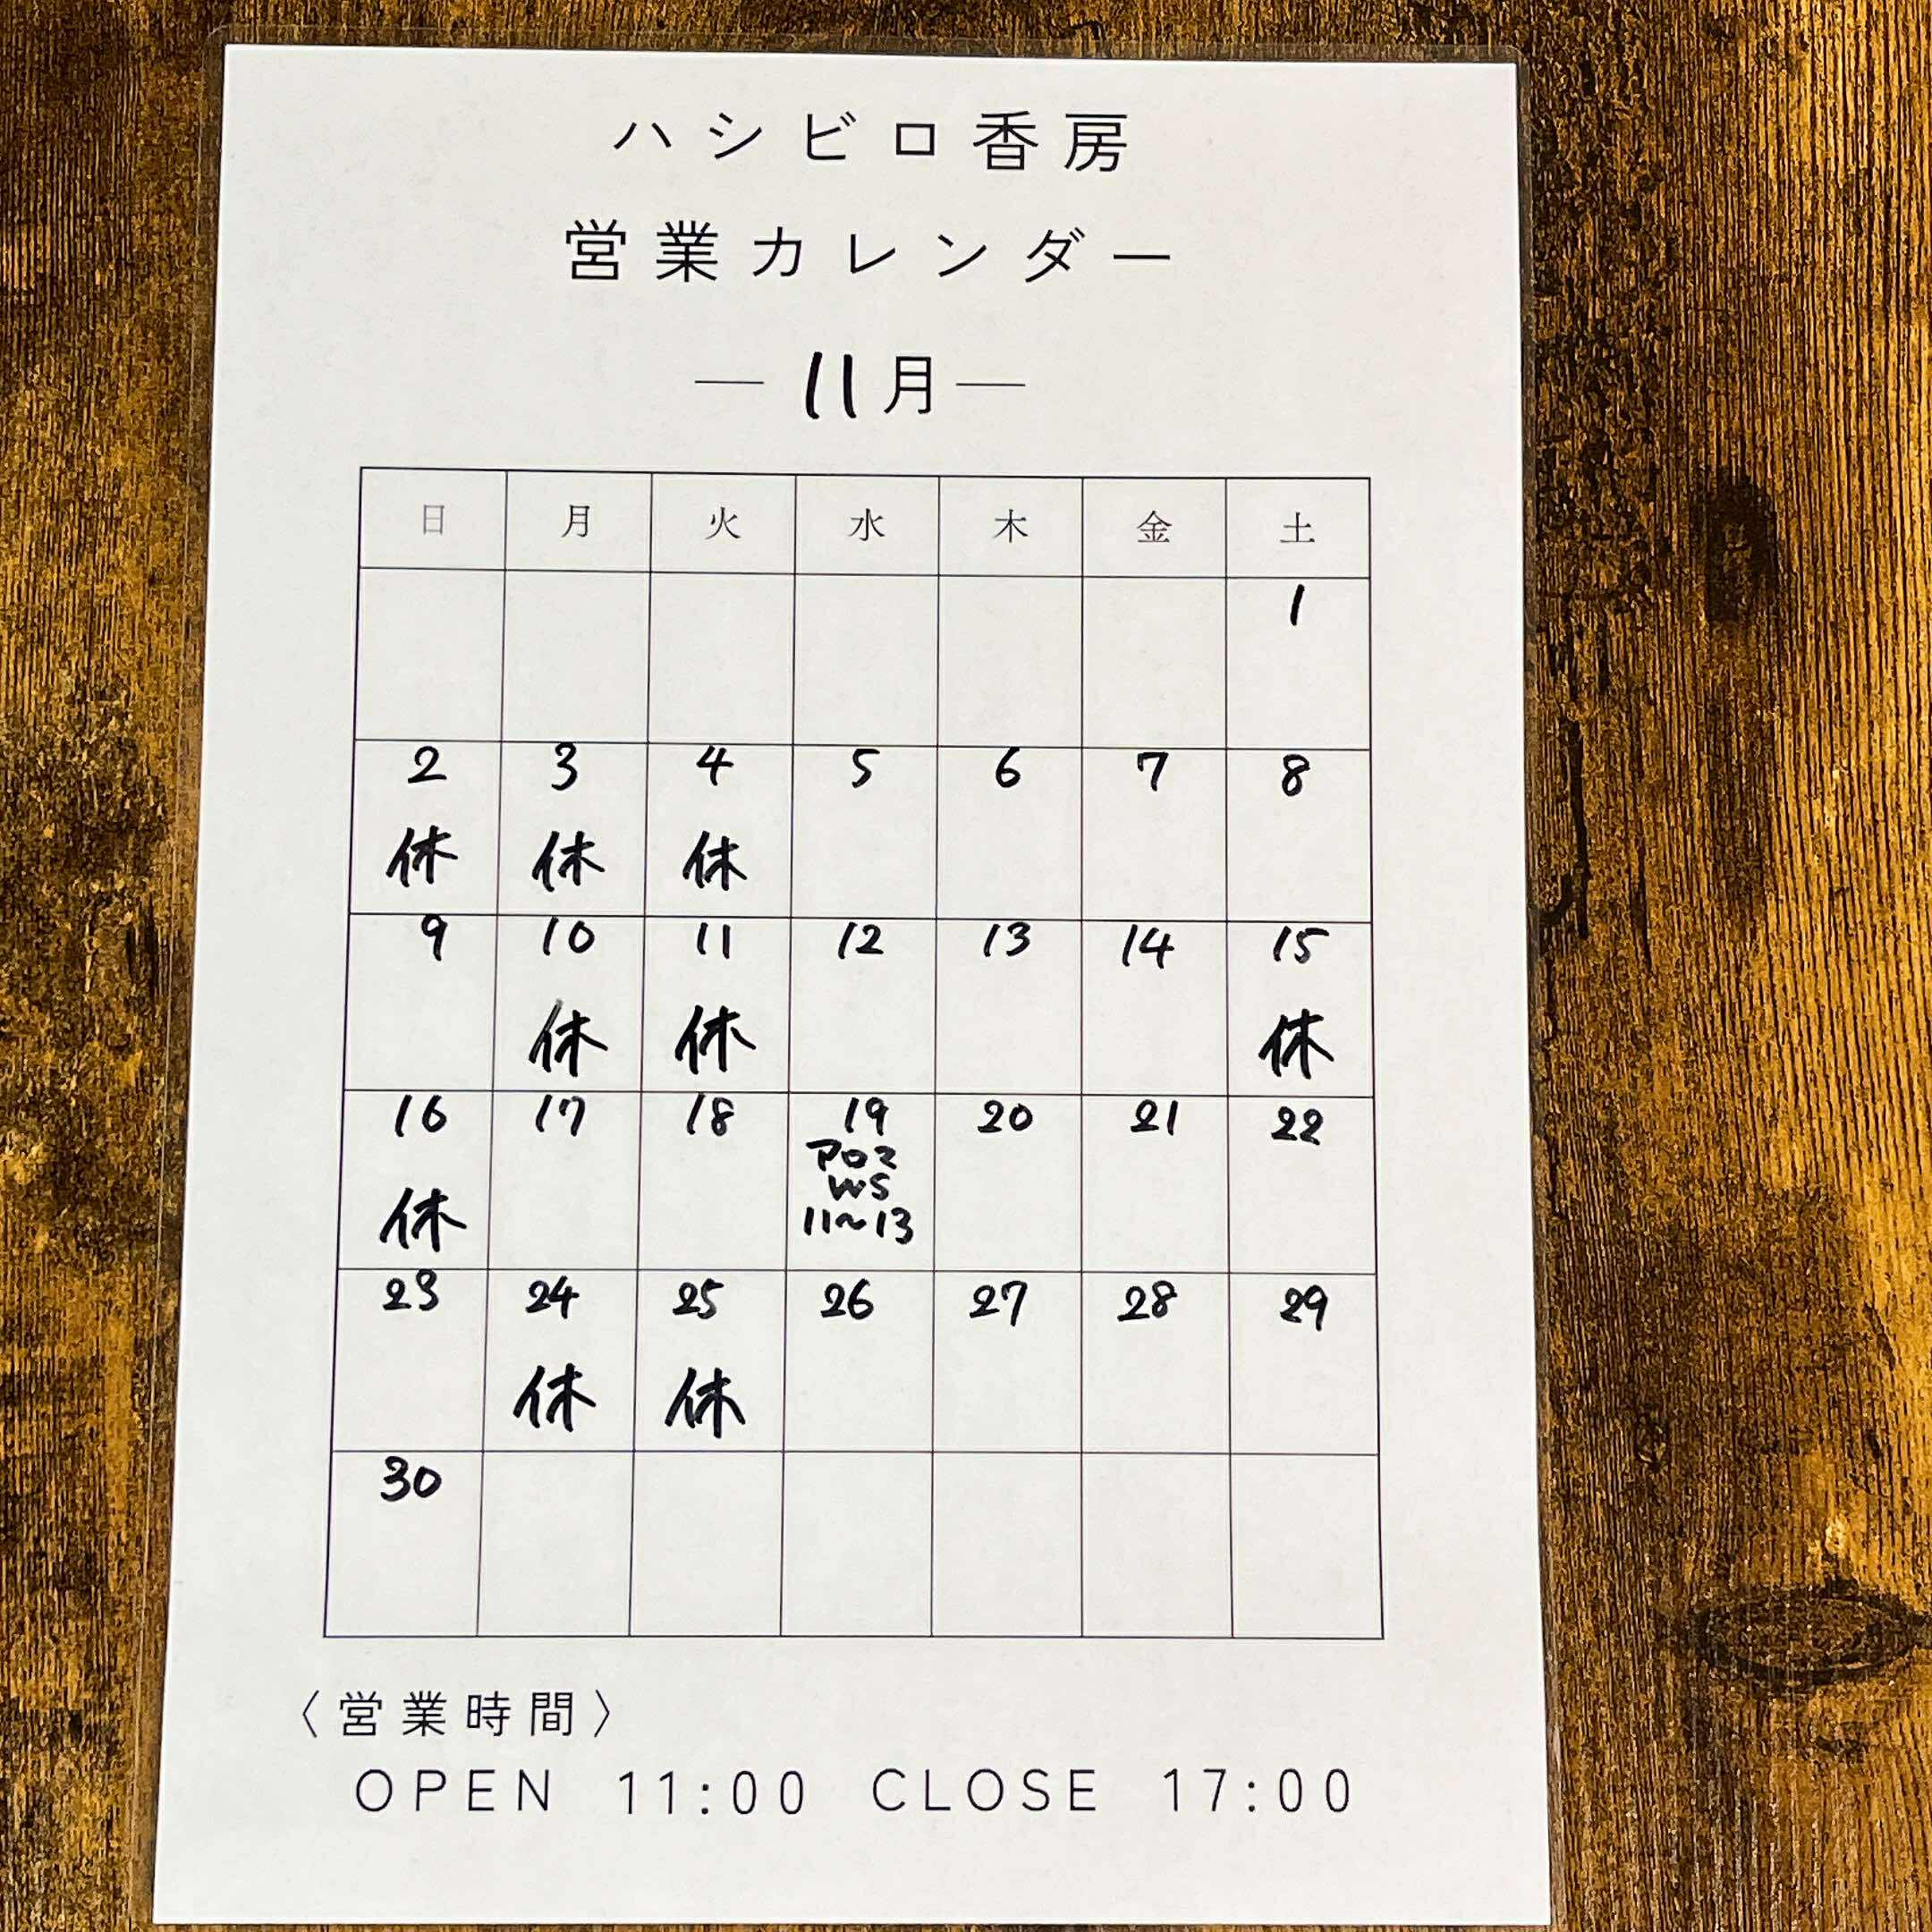 ハシビロ香房
営業カレンダー
— 11月 —
日 月 火 水 木 金 土
1
2 3 4 5 6 7 8
休 休 休
9 10 11 12 13 14 15
休 休 休
16 17 18 19 20 21 22
アロマ
WS
11〜13
休
23 24 25 26 27 28 29
休 休
30
〈営業時間〉
OPEN 11:00 CLOSE 17:00